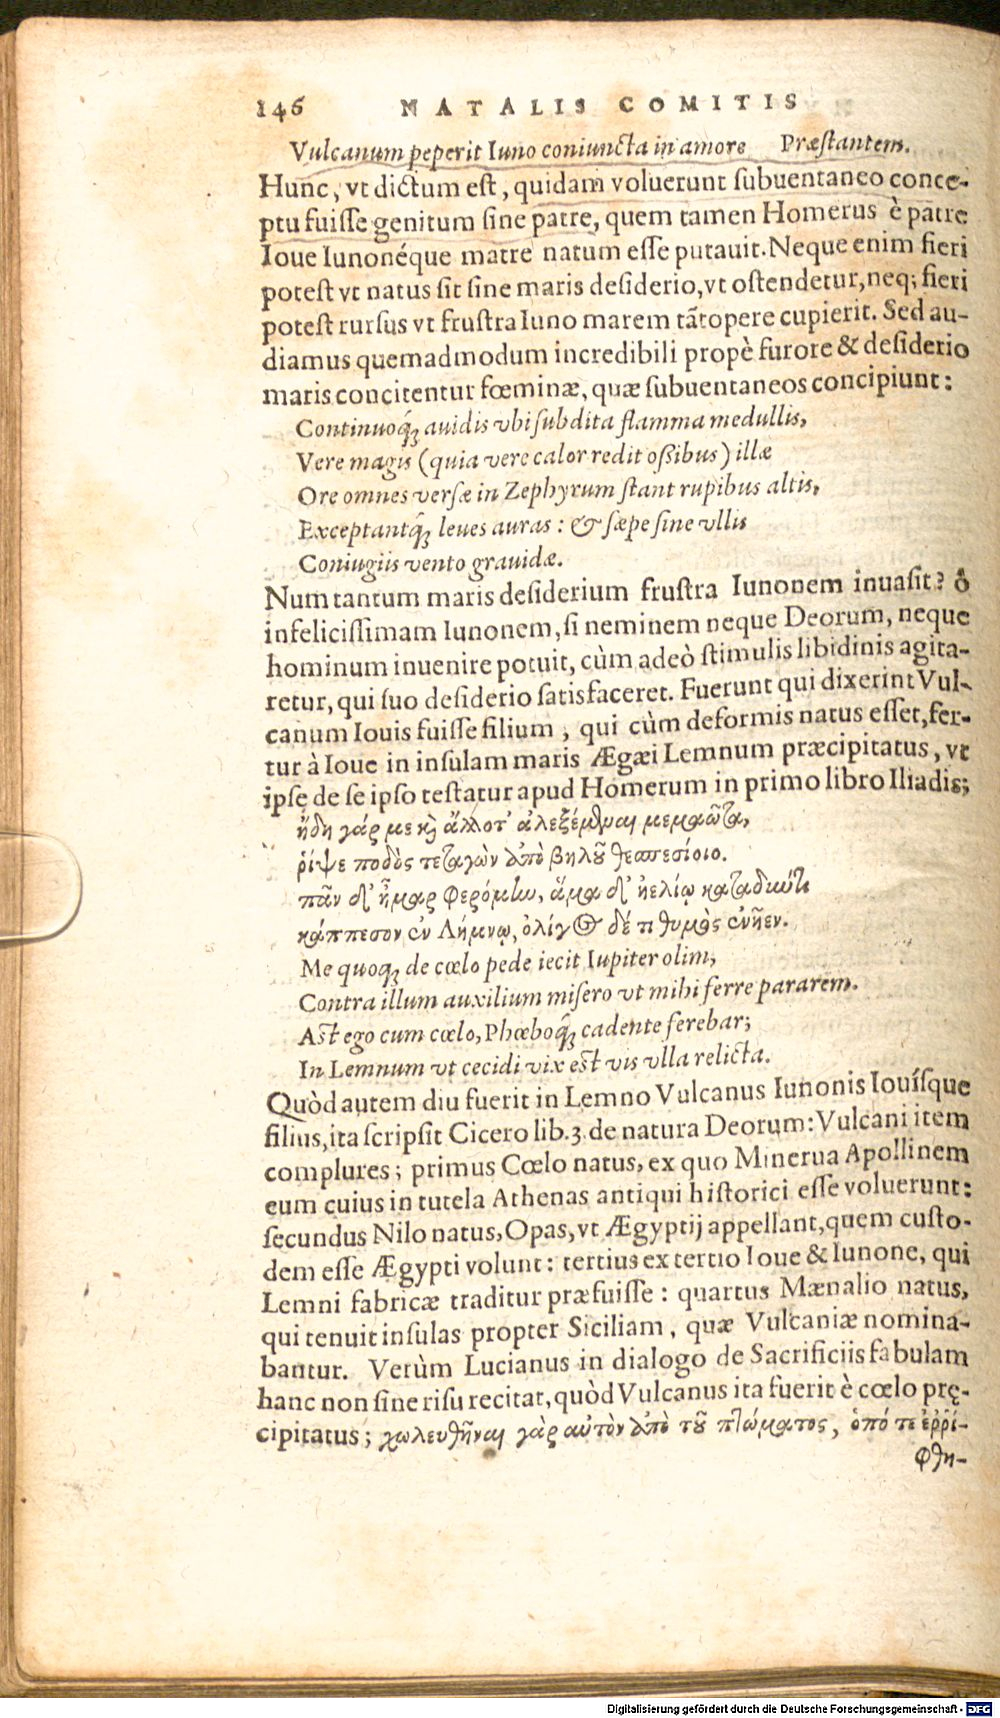 146 NATALIS COMITIS
Vulcanum peperit Iuno coniuncta in amore Præstantem.
Hunc, vt dictum est, quidam voluerunt subuentaneo conce-
ptu fuisse genitum sine patre, quem tamen Homerus è patre
Ioue Iunonéque matre natum esse putauit. Neque enim fieri
potest vt natus sit sine maris desiderio, vt ostendetur, neq; fieri
potest rursus vt frustra Iuno marem tãtopere cupierit. Sed au-
diamus quemadmodum incredibili propè furore & desiderio
maris concitentur fœminæ, quæ subuentaneos concipiunt:
Continuoq́; auidis vbi subdita flamma medullis,
Vere magis (quia vere calor redit ossibus) illæ
Ore omnes versæ in Zephyrum stant rupibus altis,
Exceptantq́; leues auras: & sæpe sine vllis
Coniugiis vento grauidæ.
Num tantum maris desiderium frustra Iunonem inuasit? ô
infelicissimam Iunonem, si neminem neque Deorum, neque
hominum inuenire potuit, cùm adeò stimulis libidinis agita-
retur, qui suo desiderio satisfaceret. Fuerunt qui dixerint Vul-
canum Iouis fuisse filium, qui cùm deformis natus esset, fer-
tur à Ioue in insulam maris Ægæi Lemnum præcipitatus, vt
ipse de se ipso testatur apud Homerum in primo libro Iliadis;
ἤδη γάρ με κὶ ἄλλοτ' ἀλεξέμθμαι μεμαῶτα,
ῥίψε ποδὸς τεταγὼν ἀπὸ βηλοῦ θεσπεσίοιο.
πᾶν δ' ἦμαρ φερόμην, ἅμα δ' ἠελίῳ καταδιώτι
κάππεσον ἐν Λήμνῳ, ὀλίγος δέ τι θυμὸς ἐνῆεν.
Me quoq; de cœlo pede iecit Iupiter olim,
Contra illum auxilium misero vt mihi ferre pararem.
Ast ego cum cœlo, Phœboq́; cadente ferebar;
In Lemnum vt cecidi vix est vis vlla relicta.
Quòd autem diu fuerit in Lemno Vulcanus Iunonis Iouísque
filius, ita scripsit Cicero lib. 3. de natura Deorum: Vulcani item
complures; primus Cœlo natus, ex quo Minerua Apollinem
eum cuius in tutela Athenas antiqui historici esse voluerunt:
secundus Nilo natus, Opas, vt Ægyptij appellant, quem custo-
dem esse Ægypti volunt: tertius ex tertio Ioue & Iunone, qui
Lemni fabricæ traditur præfuisse: quartus Mænalio natus,
qui tenuit insulas propter Siciliam, quæ Vulcaniæ nomina-
bantur. Verùm Lucianus in dialogo de Sacrificiis fabulam
hanc non sine risu recitat, quòd Vulcanus ita fuerit è cœlo prę-
cipitatus; χωλευθῆναι γὰρ αὐτὸν ἀπὸ τοῦ πτώματος, ὁπό τε ἐῤῥί-
φθη-
Digitalisierung gefördert durch die Deutsche Forschungsgemeinschaft - DFG